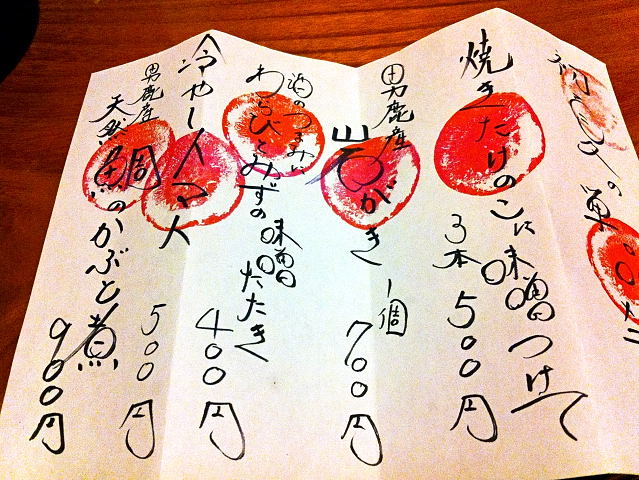 焼きたけのこに味噌つけて
3本 500円
男鹿産
岩がき 1個
700円
酒のつまみに
わらびとみずの味噌たたき
400円
冷やしトマト
500円
男鹿産
天然鯛のかぶと煮
900円